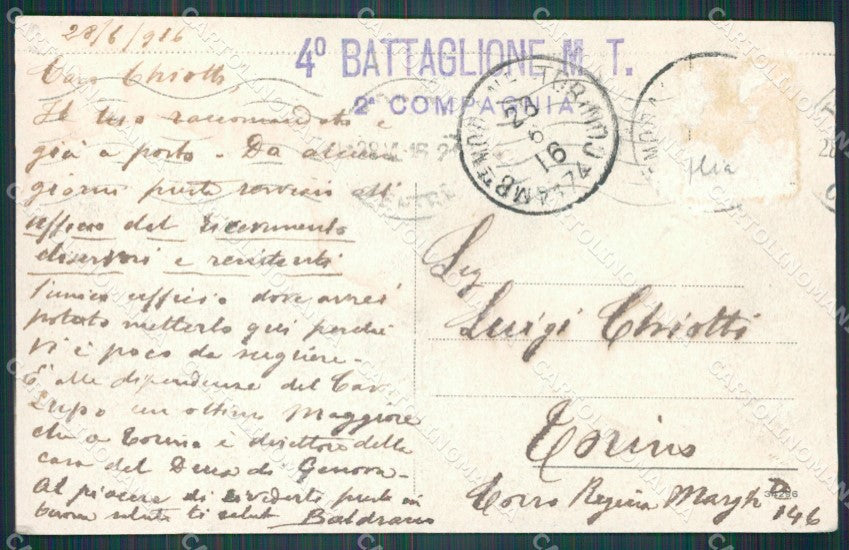 28/6/916
4º BATTAGLIONE M. T.
2ª COMPAGNIA
Caro Chiotti,
Il tuo raccomandato è
già a posto. Da alcuni
giorni presta servizio all'
ufficio del ricevimento
disertori e renitenti
l'unico ufficio dove avrei
potuto metterlo qui perché
vi è poco da scegliere.
È alle dipendenze del Cav.
Lupo un ottimo Maggiore
che a Torino è direttore della
casa del Duca di Genova.
Al piacere di rivederti presto in
buona salute ti saluto Baldrano
28 6 16
TORINO
Sig
Luigi Chiotti
Torino
Corso Regina Margh
146
34296
CARTOLINOMANIA